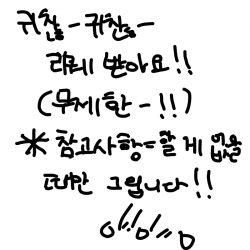 귀찮- 귀찮-
리퀘 받아요!!
(무제한-!!)
* 참고사항=할 게 없을
때만 그립니다!!